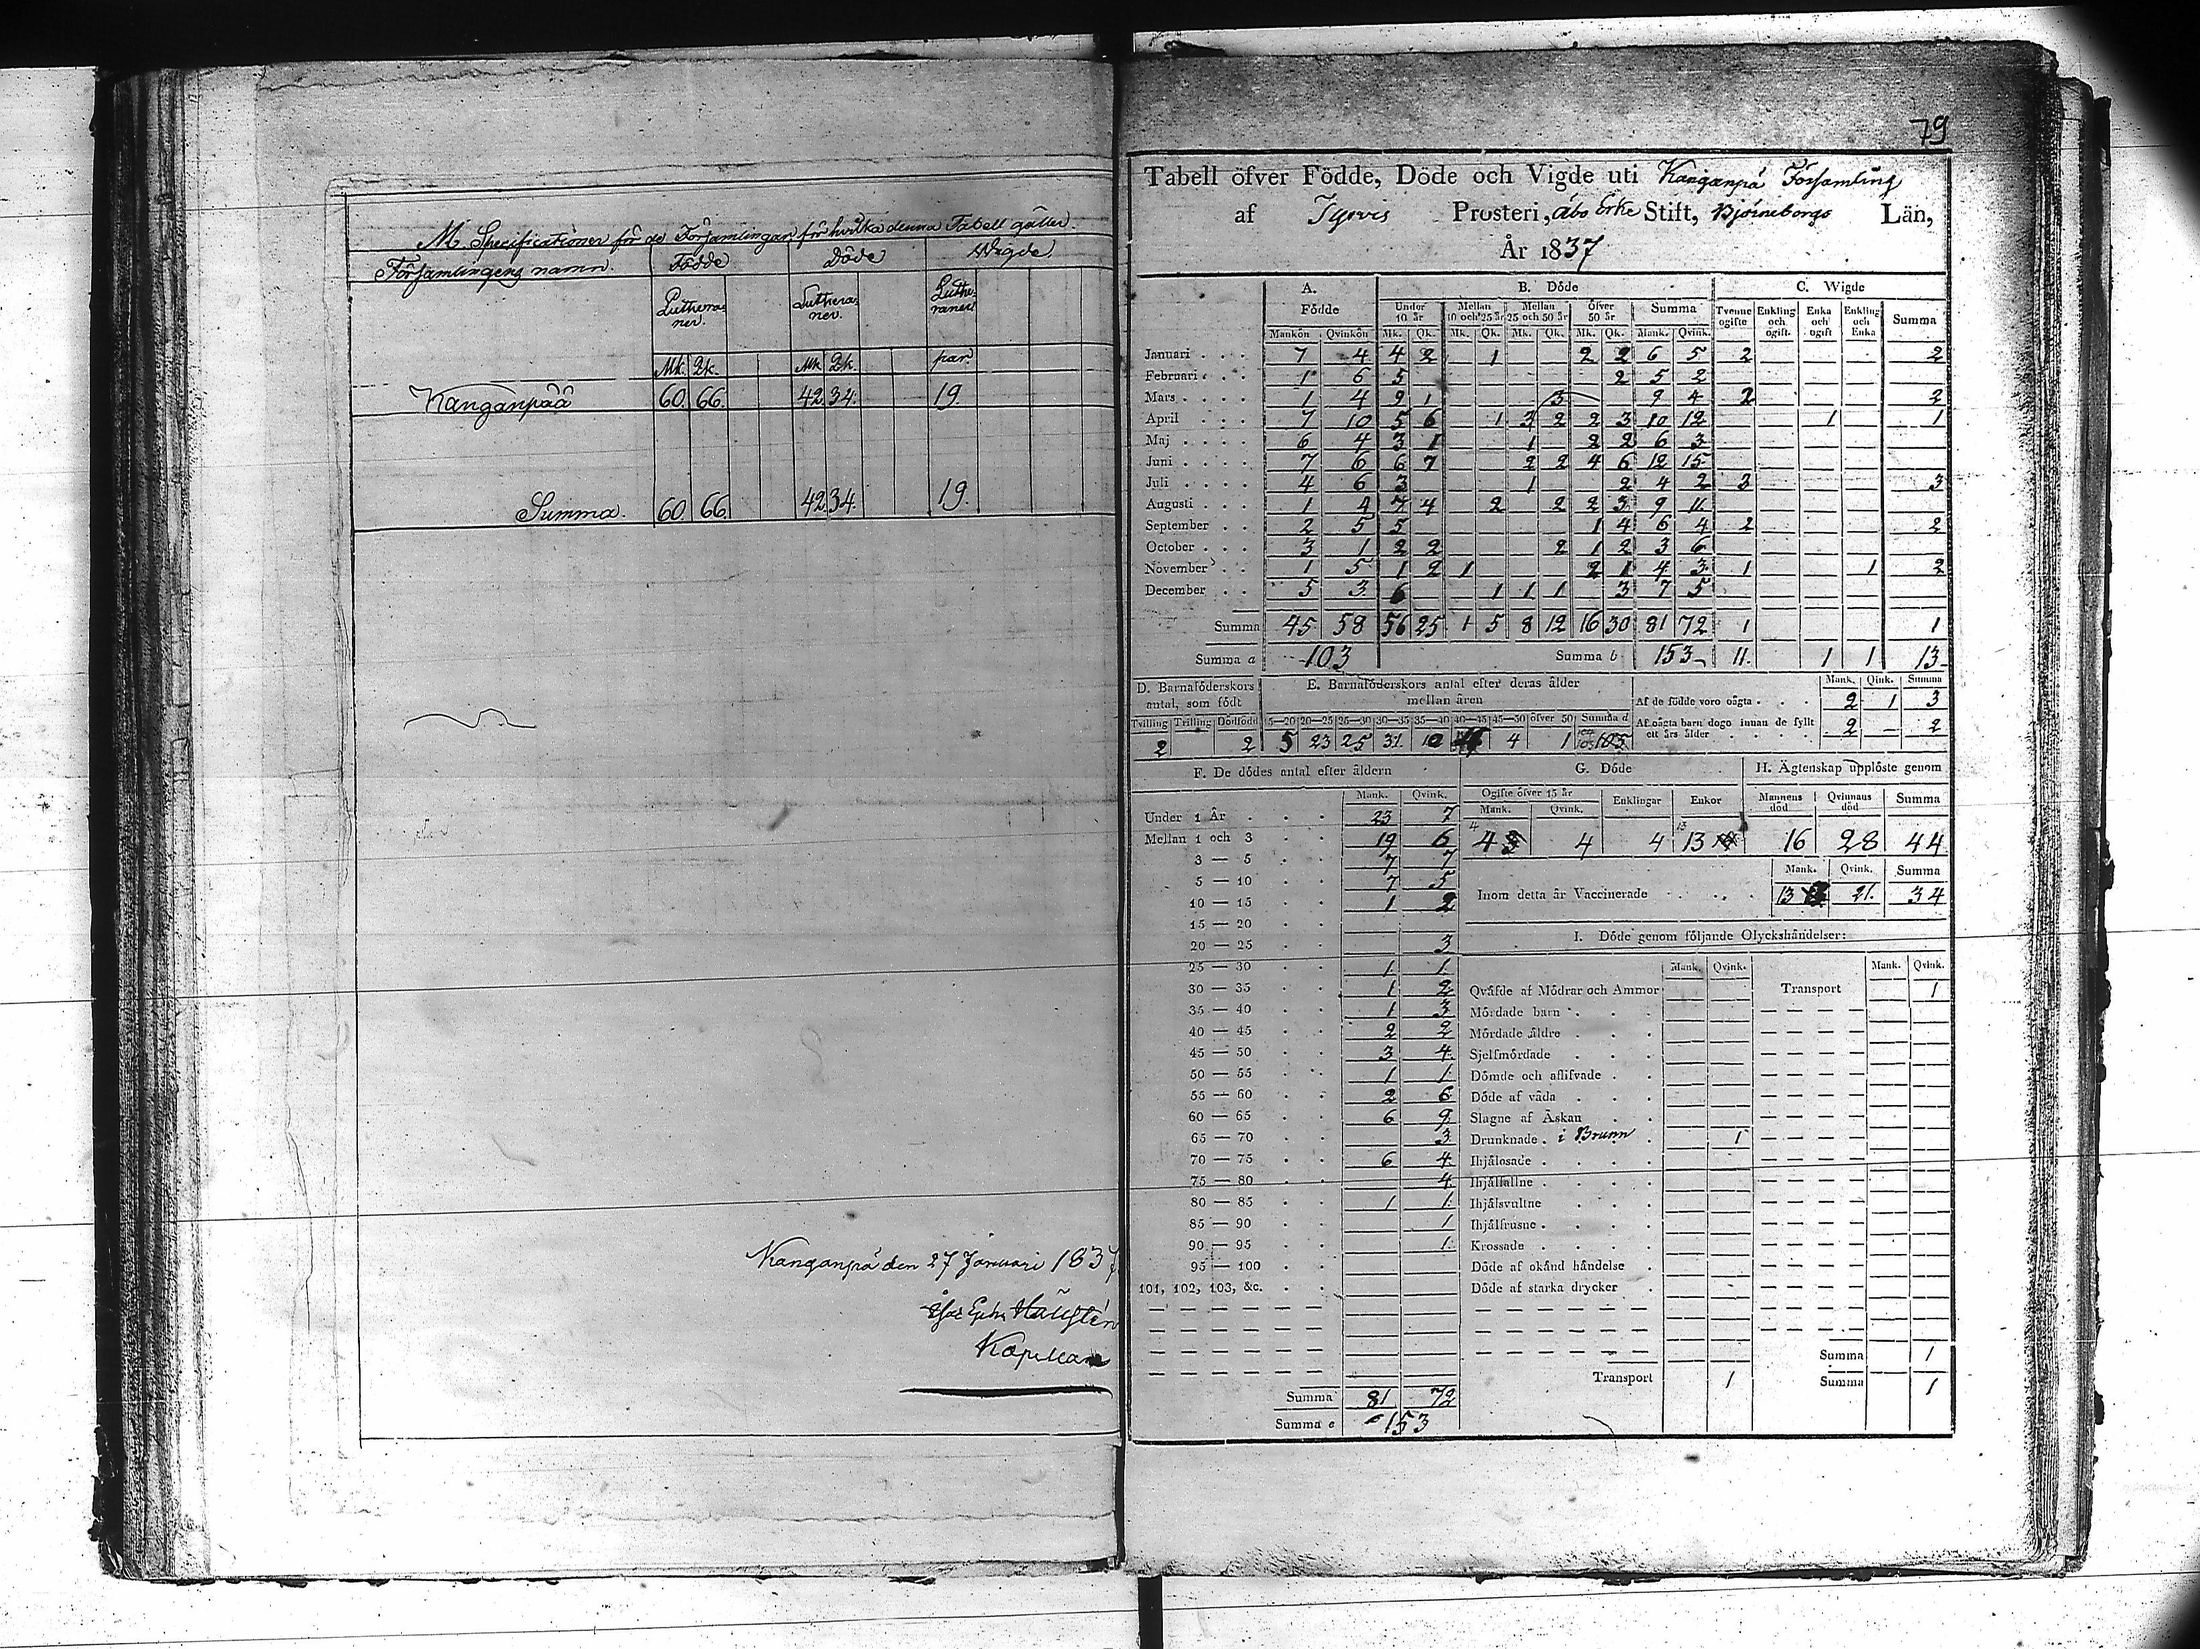 M. Specificationer för de Församlingar, för hvilka denna Tabell gäller.
Församlingens namn. Födde Döde Wigde.
Lutheraner. Lutheraner. Lutheraner
Mk. Qk. Mk. Qk. par.
Kanganpää 60. 66. 42. 34. 19.
Summa. 60. 66. 42. 34. 19.
Kanganpä den 27 Januari 1837
Kapellan
79
Tabell öfver Födde, Döde och Vigde uti Kanganpä Församling
af Tyrvis Prosteri, Åbo Erke Stift, Björneborgs Län,
År 1837
A. B. Döde C. Wigde
Födde Under 10 år Mellan 10 och 25 år Mellan 25 och 50 år Öfver 50 år Summa Tvenne ogifte Enkling och ogift. Enka och ogift Enkling och Enka Summa
Mankön Qvinkön Mk. Qk. Mk. Qk. Mk. Qk. Mk. Qk. Mank. Qvink.
Januari 7 4 4 2 1 2 2 6 5 2 2
Februari 1 6 5 2 5 2
Mars 1 4 9 1 3 9 4 2 2
April 7 10 5 6 1 3 2 2 3 10 12 1 1
Maj 6 4 3 1 1 2 2 6 3
Juni 7 6 6 7 2 2 4 6 12 15
Juli 4 6 3 1 2 4 2 3 3
Augusti 1 4 7 4 2 2 2 3 9 11
September 2 5 5 1 4 6 4 2 2
October 3 1 2 2 2 1 2 3 6
November 1 5 1 2 1 2 1 4 3 1 1 2
December 5 3 6 1 1 1 3 7 5
Summa 45 58 56 25 1 5 8 12 16 30 81 72 1 1
Summa a 103 Summa b 153 11. 1 1 13
D. Barnaföderskors antal, som födt E. Barnaföderskors antal efter deras ålder mellan åren Mank. Qink. Summa
Af de födde voro oägta 2 1 3
Tvilling Trilling Dödfödt 15—20 20—25 25—30 30—35 35—40 40—45 45—50 öfver 50 Summa d Af oägta barn dogo innan de fyllt ett års ålder 2 — 2
2 2 5 23 25 31 10 4 1 103
F. De dödes antal efter åldern G. Döde H. Ägtenskap upplöste genom
Mank. Qvink. Ogifte öfver 15 år Mank. Qvink. Enklingar Enkor Mannens död Qvinnans död Summa
Under 1 År 23 7
Mellan 1 och 3 19 6 4 4 4 13 16 28 44
3 — 5 7 7
5 — 10 7 5 Mank. Qvink. Summa
10 — 15 1 2 Inom detta år Vaccinerade 13 21. 34
15 — 20
20 — 25 3 I. Döde genom följande Olyckshändelser:
25 — 30 1 1 Mank. Qvink. Mank. Qvink.
30 — 35 1 2 Qväfde af Mödrar och Ammor Transport 1
35 — 40 1 3 Mördade barn
40 — 45 2 2 Mördade äldre
45 — 50 3 4 Sjelfmördade
50 — 55 1 1 Dömde och aflifvade
55 — 60 2 6 Döde af våda
60 — 65 6 9 Slagne af Åskan
65 — 70 3 Drunknade i Brunn 1
70 — 75 6 4 Ihjälosade
75 — 80 4 Ihjälfallne
80 — 85 1 1 Ihjälsvultne
85 — 90 1 Ihjälfrusne
90 — 95 1 Krossade
95 — 100 Döde af okänd händelse
101, 102, 103, &c. Döde af starka drycker
Summa 1
Transport 1 Summa 1
Summa 81 72
Summa e 153